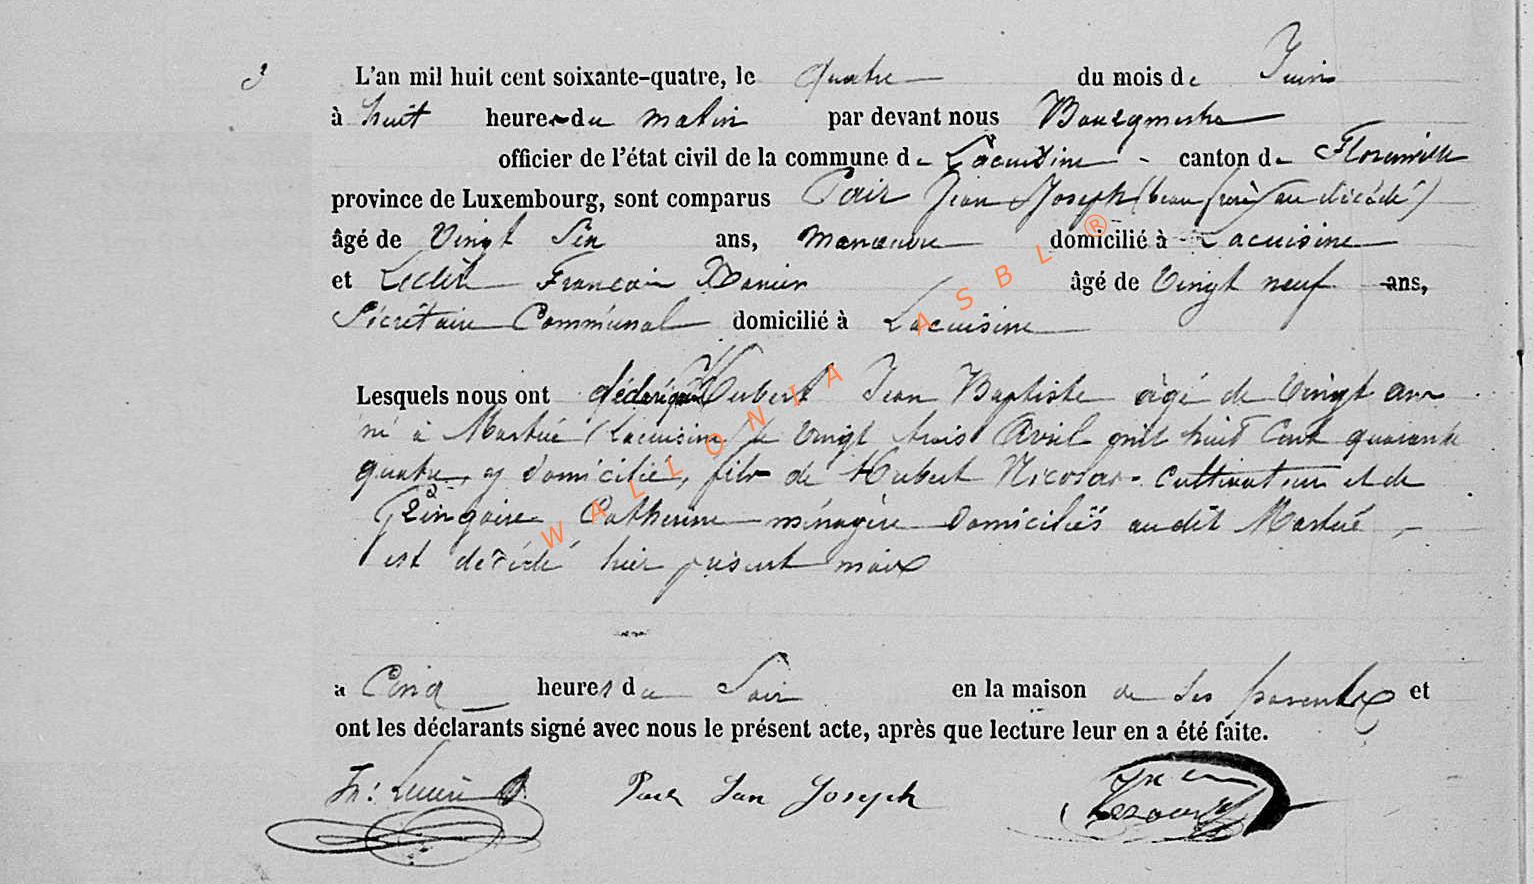 3
L'an mil huit cent soixante-quatre, le quatre du mois de Juin
à huit heures du matin par devant nous Bourgmestre
officier de l'état civil de la commune de Lacuisine - canton de Florenville
province de Luxembourg, sont comparus Jean Joseph (beau frère au décédé)
âgé de Vingt Six ans, manœuvre domicilié à Lacuisine
et François Xavier âgé de Vingt neuf ans,
Sécrétaire Communal domicilié à Lacuisine
Lesquels nous ont Hubert Jean Baptiste âgé de Vingt ans
né à Martué (Lacuisine) le Vingt trois Avril mil huit Cent quarante
quatre, y domicilié, fils de Hubert Nicolas - Cultivateur et de
Catherine ménagère domiciliés audit Martué,
est décédé hier présent mois
a Cinq heures du Soir en la maison de ses parents et
ont les déclarants signé avec nous le présent acte, après que lecture leur en a été faite.
Jean Joseph
WALLONIA ASBL ®